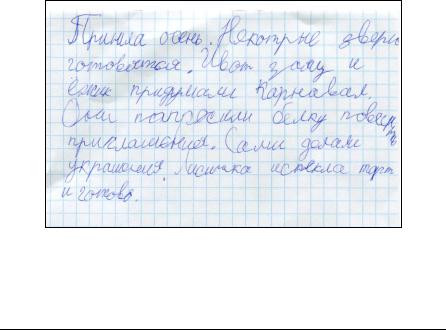 Пришла осень. Некотрые звери
готовятся. И вот заяц и
ёжик придумали карнавал.
Они попросили белку повесить
приглашения. Сами делали
украшения. Лисичка испекла торт
и готово.